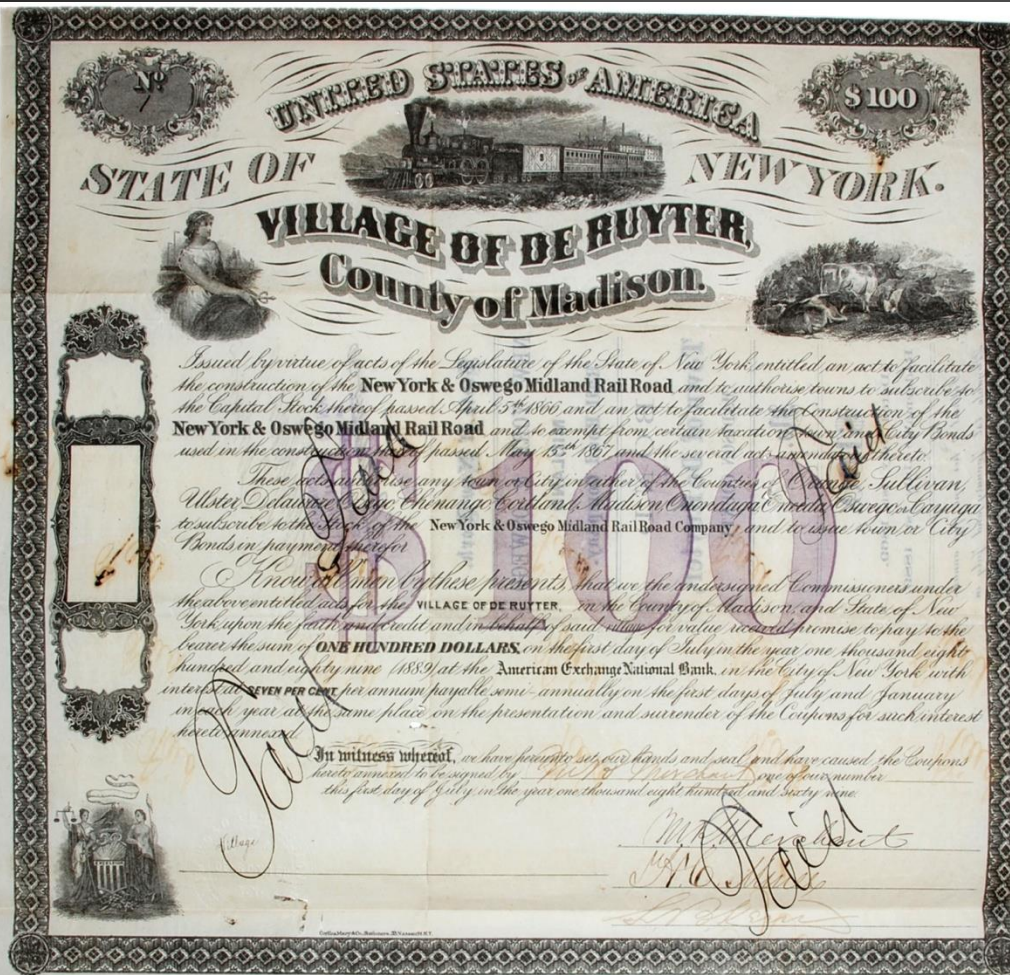 No
1
$100
UNITED STATES OF AMERICA
STATE OF NEW YORK.
VILLAGE OF DE RUYTER,
County of Madison.
Issued by virtue of acts of the Legislature of the State of New York entitled an act to facilitate
the construction of the New York & Oswego Midland Rail Road and to authorise towns to subscribe to
the Capital Stock thereof passed April 5th 1866 and an act to facilitate the Construction of the
New York & Oswego Midland Rail Road and to exempt from certain taxation town and City Bonds
used in the construction thereof passed May 15th 1867 and the several acts amendatory thereto.
These acts authorise any town or City in either of the Counties of Orange, Sullivan,
Ulster, Delaware, Otsego, Chenango, Cortland, Madison, Onondaga, Oneida, Oswego or Cayuga
to subscribe to the Stock of the New York & Oswego Midland Rail Road Company, and to issue town or City
Bonds in payment therefor
$100
Know all men by these presents, that we the undersigned Commissioners under
the above entitled acts for the VILLAGE OF DE RUYTER, in the County of Madison, and State of New
York, upon the faith and credit and in behalf of said village for value received promise to pay to the
bearer the sum of ONE HUNDRED DOLLARS, on the first day of July in the year one thousand eight
hundred and eighty nine (1889) at the American Exchange National Bank, in the City of New York with
interest at SEVEN PER CENT, per annum payable semi-annually on the first days of July and January
in each year at the same place on the presentation and surrender of the Coupons for such interest
hereto annexed.
In witness whereof, we have hereunto set our hands and seal and have caused the Coupons
hereto annexed to be signed by Merchant one of our number
this first day of July in the year one thousand eight hundred and sixty nine.
Paid
Paid
Paid
Paid
Village
Merchant